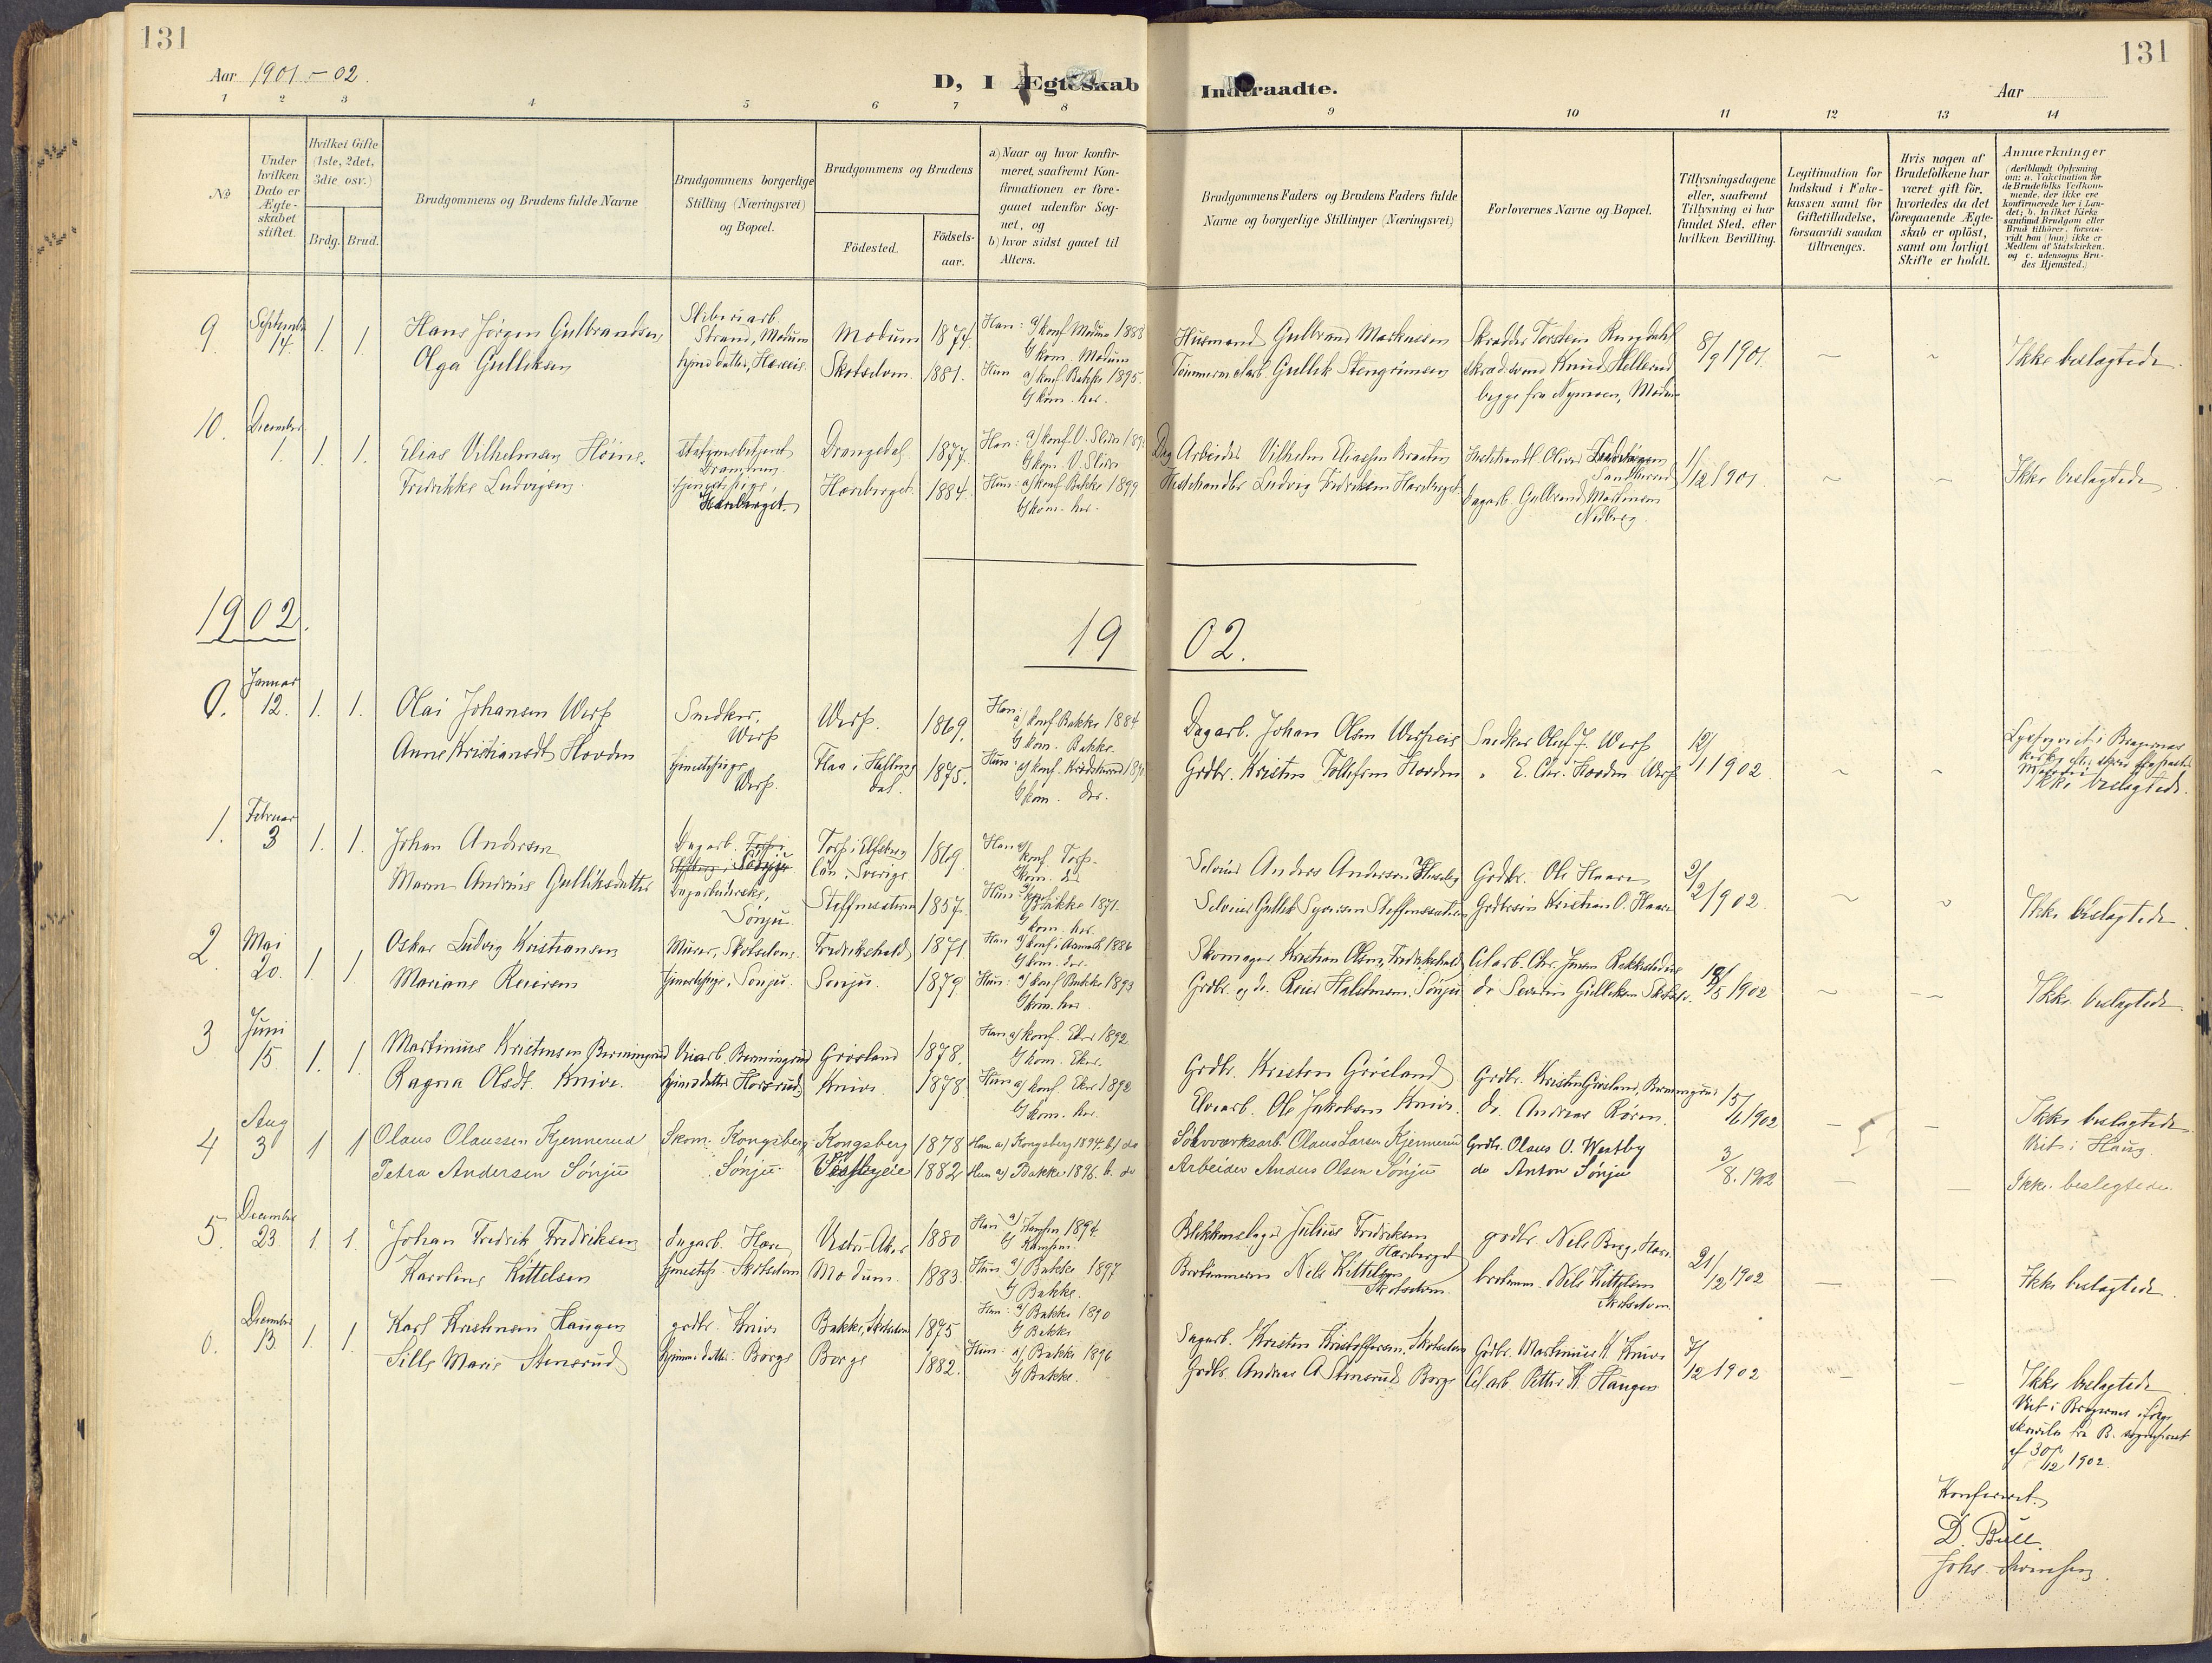 131
131
Aar 1901-02.
D, I Ægteskab Indtraadte.
Aar
1 2 3 4 5 6 7 8 9 10 11 12 13 14
№
Under hvilken Dato er Ægteskabet stiftet.
Hvilket Gifte (1ste, 2det, 3die osv.)
Brdg. Brud.
Brudgommens og Brudens fulde Navne
Brudgommens borgerlige Stilling (Næringsvei) og Bopæl.
Brudgommens og Brudens
Födested.
Födselsaar.
a) Naar og hvor konfirmeret, saafremt Konfirmationen er foregaaet udenfor Sognet, og
b) hvor sidst gaaet til Alters.
Brudgommens Faders og Brudens Faders fulde Navne og borgerlige Stillinger (Næringsvei)
Forlovernes Navne og Bopæl.
Tillysningsdagene eller, saafremt Tillysning ei har fundet Sted, efter hvilken Bevilling.
Legitimation for Indskud i Enkekassen samt for Giftetilladelse, forsaavidt saadan tiltrænges.
Hvis nogen af Brudefolkene har været gift för, hvorledes da det foregaaende Ægteskab er oplöst, samt om lovligt Skifte er holdt.
Anmerkninger
(deriblandt Oplysning om: a. Vakcination for de Brudefolks Vedkommende, der ikke ere konfirmerede her i Landet; b. hvilket Kirkesamfund Brudgom eller Brud tilhörer, forsaavidt han (hun) ikke er Medlem af Statskirken, og c. udensogns Brudes Hjemsted.)
9. September 14. 1. 1. Hans Jørgen Gulbrandsen Strand, Modum Modum 1874 Han: a/ konf. Modum 1888 Husmand Gulbrand Markussen 8/9 1901. Ikke beslægtede.
b/ kom. Modum
Olga Gulliksen Skotselven. 1881. Hun a/ konf. Bakke 1895. Gullik Stengrimsen
b/ kom. her. begge fra Nymoen, Modum
10. December 1. 1. 1. Elias Vilhelmsen Drangedal 1877. Han: a/ konf. V. Slidre Arbeider Vilhelm Eliassen Braaten 1/12 1901 Ikke beslægtede
Drammen b/ kom. V. Slidre
Fredrikke Ludvigsen. tjenestepige, Horeberget. 1884. Hun: a/ konf. Bakke 1899 Hestehandler Ludvig Fredriksen Dagarb. Gulbrand Martinsen
b/ kom. her.
1902. 1902.
0. Januar 12. 1. 1. Olai Johansen Werp Snedker, Werp Werp. 1869. Han a/ konf. Bakke 1884 Dagarb. Johan Olsen Werpeie Snedker Oluf J. Werp 12/1 1902
b/ kom. Bakke.
Anne Kristiansdt. Hovden tjenestepige Werp. Flaa i Hallingdal. 1875. Hun: a/ konf. Krødsherred Grdbr. Kristen Tollefsen Hovden " E. Chr. Hovden Werp Ikke beslægtede.
b/ kom. der.
1. Februar 3 1. 1. Johan Andersen Dagarb. Torp i Elfsborg Län, Sverige 1869 Han a/ konf. Torp. Anders Anderson Grdbr. Ole Haare 2/2 1902
kom. der
Maren Andrine Gulliksdatter Dagarbeiderske, Sønju. 1857. Hun: a/ konf. Bakke 1871. Selveier Gullik Syversen Grdbrsøn Kristian O. Haare Ikke beslægtede
b/ kom. her.
2. Mai 20. 1. 1. Oskar Ludvig Kristiansen Murer, Skotselven. Fredrikshald 1871 Han a/ konf. i Aremark 1886 Skomager Kristian Olsen, Fredrikshald Celarb. Chr. Jensen 18/5 1902
b/ kom. der.
Mariane Reiersen tjenestepige, Sønju. Sønju. 1879 Hun: a/ konf. Bakke 1893 Reier Halstensen, Sønju do Severin Gulliksen Ikke beslægtede.
b/ kom. her.
3 Juni 15 1. 1. Martinius Kristensen Bermingrud Bermingrud Grøsland 1878. Han a/ konf. Eker 1892 Grdbr. Kristen Grøsland Grdbr. Kristen Grøsland, Bermingrud 15/6 1902
b/ kom. Eker.
Ragna Olsdt. Knive. hjemmedatter Knive 1878 Hun a/ konf. Eker 1892 Ole Jakobsen Knive. do. Andreas Røren. Ikke beslægtede
b/ kom. her. Viet i Haug.
4 Aug 3 1 1 Olaus Olaussen Kjennerud Skom. Kongsberg Kongsberg 1878 Han a/ Kongsberg 1894. b/ do Sølvværksarb. Olaus Larsen Kjennerud Grdbr. Olaus O. Westby 3/8. 1902
Petra Andersen Sønju Sønju Vestbyeie 1882 Hun a/ Bakke 1896. b. do Arbeider Anders Olsen Sønju do Anton Sønju Ikke beslegtede.
5. December 23 1. 1. Johan Fredrik Fredriksen dagarb. Hore Vestre Aker 1880 Han a/ Kampen 1894. Blikkenslager Julius Fredriksen grdbr. Nels Berg, Hore 21/12 1902
b/ Kampen.
Karoline Kittelsen Skotselven Modum. 1883. Hun a/ Bakke 1897 Nels Kittelsen Skotselven Nels Kittelsen Skotselven Ikke beslægtede.
b/ Bakke.
6. December 13. 1. 1. Karl Kristensen Haugen grdbr. Knive Bakke, Skotselven 1875 Han: a/ Bakke 1890 Dagarb. Kristen Kristoffersen, Skotselven Grdbr. Martinius K. Knive 7/12 1902
b/ Bakke
Sille Marie Stensrud hjemmedatter Borge Borge 1882. Hun: a/ Bakke 1896 Grdbr. Andreas A. Stensrud Borge Cel. arb. Petter K. Haugen Ikke beslægtede
b/ Bakke. Viet i Bragernes ifølge
skrivelse fra B. sognepræst
af 30/12 1902.
Konfereret.
D. Bull.